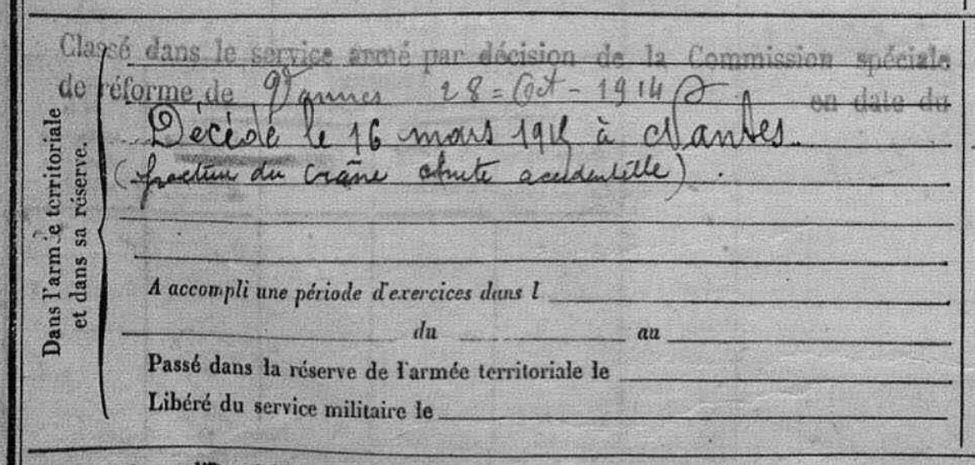 Classé dans le service armé par décision de la Commission spéciale
de réforme de Vannes 28 = Oct - 1914 en date du
Décédé le 16 mars 1915 à Nantes.
(fracture du crâne chute accidentelle).
Dans l'armée territoriale
et dans sa réserve.
A accompli une période d'exercices dans l
du au
Passé dans la réserve de l'armée territoriale le
Libéré du service militaire le